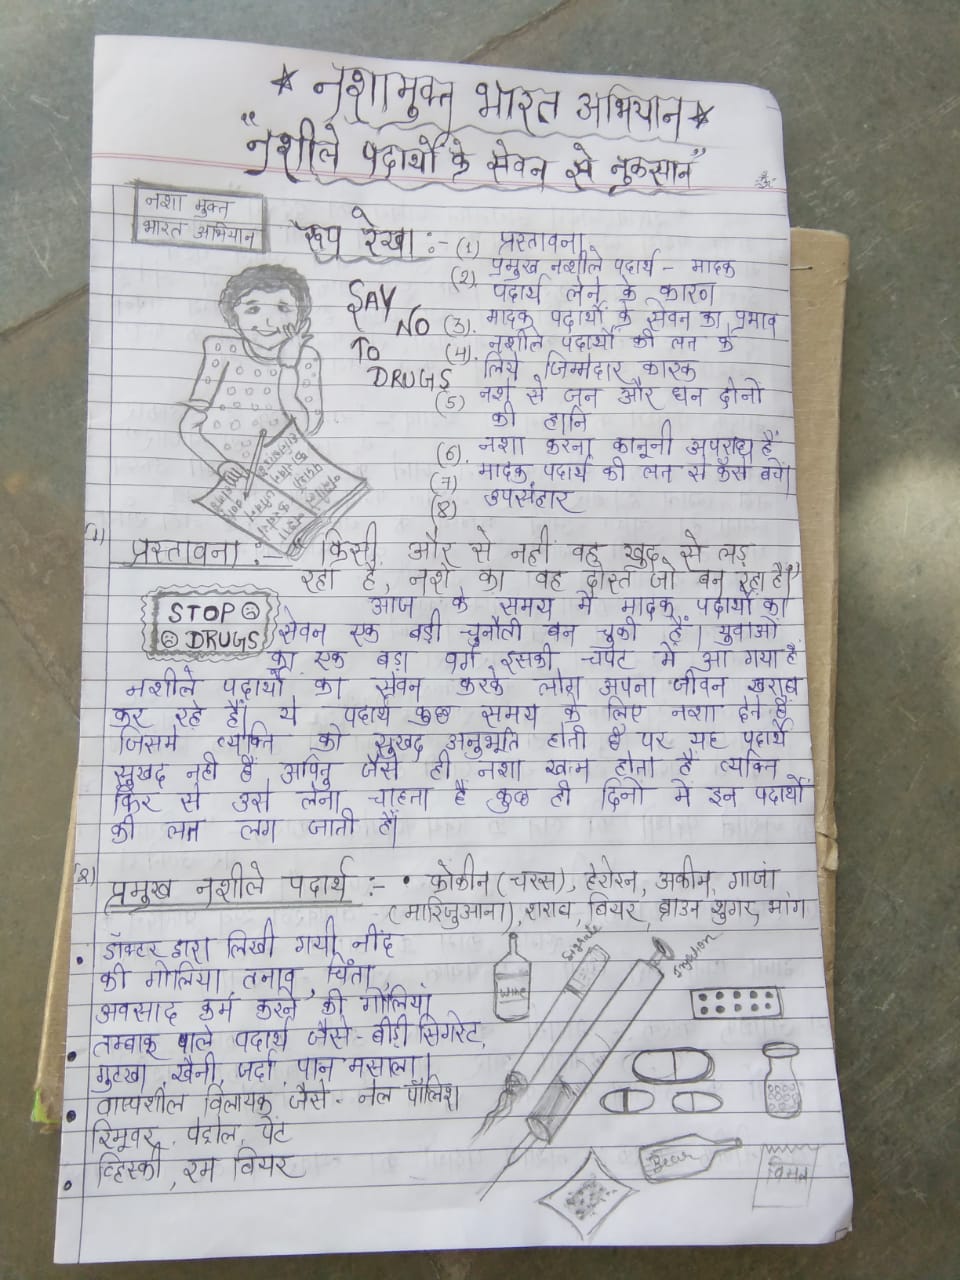 ★ नशामुक्त भारत अभियान ★
"नशीले पदार्थों के सेवन से नुकसान"
नशा मुक्त
भारत अभियान
रूप रेखा :- (1) प्रस्तावना
(2) प्रमुख नशीले पदार्थ - मादक
पदार्थ लेने के कारण
(3). मादक पदार्थों के सेवन का प्रभाव
(4). नशीले पदार्थों की लत के
लिये जिम्मेदार कारक
(5) नशे से जन और धन दोनों
की हानि
(6) नशा करना कानूनी अपराध हैं
(7) मादक पदार्थ की लत से कैसे बचें
(8) उपसंहार
SAY
NO
TO
DRUGS
(1) प्रस्तावना :- किसी और से नहीं वह खुद से लड़
रहा है, नशे का वह दोस्त जो बन रहा है"
STOP
DRUGS
आज के समय में मादक पदार्थों का
सेवन एक बड़ी चुनौती बन चुकी हैं। युवाओं
का एक बड़ा वर्ग इसकी चपेट में आ गया है
नशीले पदार्थों का सेवन करके लोग अपना जीवन खराब
कर रहे हैं। ये पदार्थ कुछ समय के लिए नशा देते हैं
जिसमे व्यक्ति को सुखद अनुभूति होती है पर यह पदार्थ
सुखद नही हैं अपितु जैसे ही नशा खत्म होता है व्यक्ति
फिर से उसे लेना चाहता है कुछ ही दिनो में इन पदार्थों
की लत लग जाती हैं।
(2) प्रमुख नशीले पदार्थ :- • कोकीन (चरस), हेरोइन, अफीम, गाजां
(मारिजुआना), शराब, बियर, ब्राउन शुगर, भांग
• डॉक्टर द्वारा लिखी गयी नींद
की गोलिया तनाव, चिंता,
अवसाद कम करने की गोलियां
• तम्बाकू वाले पदार्थ जैसे- बीड़ी सिगरेट,
गुटखा, खैनी, जर्दा, पान मसाला।
• वाष्पशील विलायक जैसे - नेल पॉलिश
रिमूवर, पेट्रोल, पेंट
• व्हिस्की, रम बियर
wine
Injection
Bear
विमल